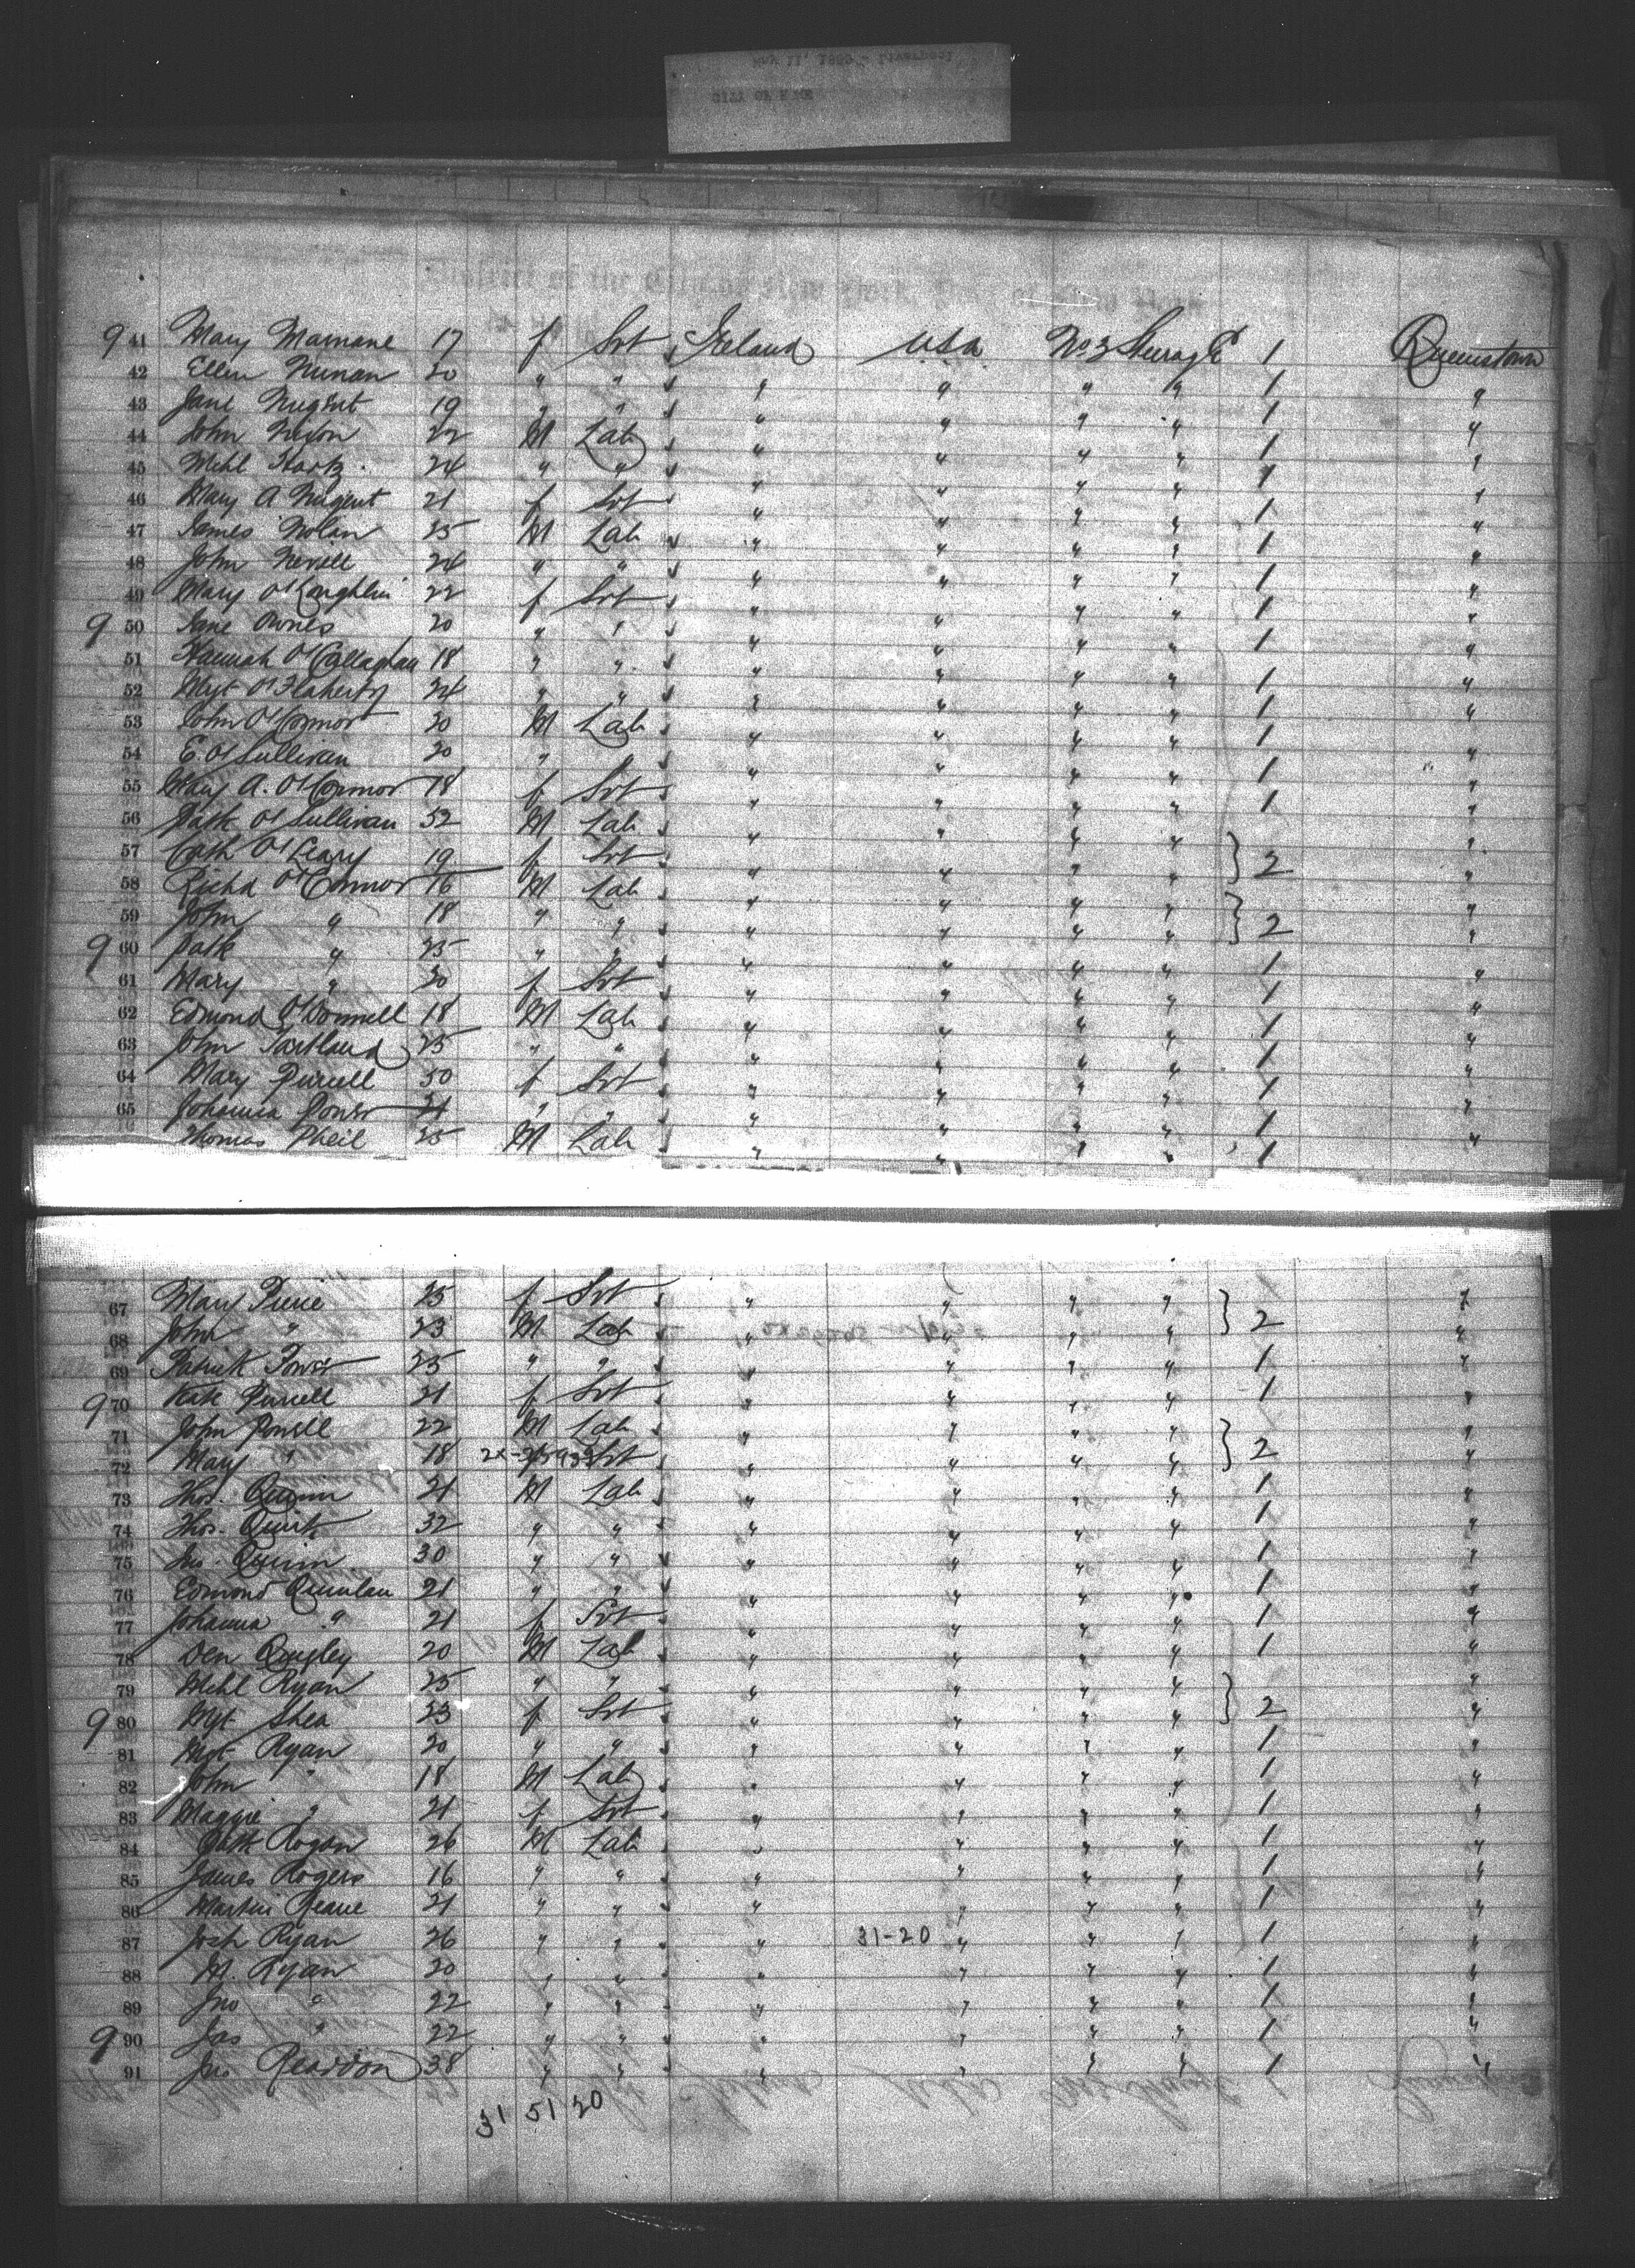 9 41 Mary Marnane 17 f Srt Ireland USA No 3 Steerage 1 Queenstown
42 Ellen Nunan 20 " " " " " " 1 "
43 Jane Nugent 19 " " " " " " 1 "
44 John Nixon 22 M Lab " " " " 1 "
45 Michl 24 " " " " " " 1 "
46 Mary A Nugent 21 f Srt " " " " 1 "
47 James Nolan 25 M Lab " " " " 1 "
48 John Nevill 24 " " " " " " 1 "
49 Mary O'Loughlin 22 f Srt " " " " 1 "
9 50 Jane Ownes 20 " " " " " " 1 "
51 Hannah O'Callaghan 18 " " " " " " 1 "
52 Mgt O'Flaherty 24 " " " " " " 1 "
53 John O'Connor 20 M Lab " " " " 1 "
54 E. O'Sullivan 20 " " " " " " 1 "
55 Mary A. O'Connor 18 f Srt " " " " 1 "
56 Patk O'Sullivan 52 M Lab " " " "
57 Cath O'Leary 19 f Srt " " " " } 2 "
58 Richd O'Connor 16 M Lab " " " "
59 John " 18 " " " " " " } 2 "
9 60 Patk " 25 " " " " " " 1 "
61 Mary " 20 f Srt " " " " 1 "
62 Edmond O'Donnell 18 M Lab " " " " 1 "
63 John Partland 25 " " " " " " 1 "
64 Mary Purcell 50 f Srt " " " " 1 "
65 Johanna Power 21 " " " " " " 1 "
Thomas Pheil 25 M Lab " " " " 1 "
67 Mary Pierie 25 f Srt " " " " } 2 "
68 John " 23 M Lab " " " " "
69 Patrick Power 25 " " " " " " 1 "
9 70 Kate Purcell 21 f Srt " " " " 1 "
71 John Powell 22 M Lab " " " " } 2 "
72 Mary " 18 Srt " " " " "
73 Thos. Quinn 21 M Lab " " " " 1 "
74 Thos. Quirk 32 " " " " " " 1 "
75 Jas. Quinn 30 " " " " " " 1 "
76 Edmond Quinlan 21 " " " " " " 1 "
77 Johanna " 21 f Srt " " " " 1 "
78 Den Quigley 20 M Lab " " " " 1 "
79 Michl Ryan 25 " " " " " " } 2 "
9 80 Mgt Shea 23 f Srt " " " " "
81 Mgt Ryan 20 " " " " " " 1 "
82 John " 18 M Lab " " " " 1 "
83 Maggie " 21 f Srt " " " " 1 "
84 Patk Rogan 26 M Lab " " " " 1 "
85 James Rogers 16 " " " " " " 1 "
86 Martin Reane 21 " " " " " " 1 "
87 Josh Ryan 26 " " " 31-20 " " " 1 "
88 M. Ryan 20 " " " " " " 1 "
89 Jno " 22 " " " " " " 1 "
9 90 Jas " 22 " " " " " " 1 "
91 Jno Reardon 38 " " " " " " 1 "
31 51 20